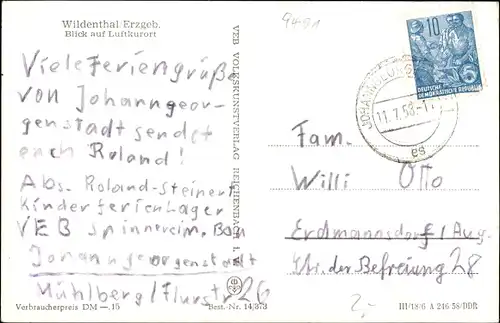 Wildenthal Erzgeb.
Blick auf Luftkurort
9491
10
DEUTSCHE
DEMOKRATISCHE REPUBLIK
11.7.58.-17
Viele Feriengrüße
von Johanngeor-
genstadt sendet
euch Roland!
Abs. Roland Steinert
Kinderferienlager
VEB Spinnerei
Johanngeorgenstadt
Mühlberg/Flurstr 26
VEB VOLKSKUNSTVERLAG REICHENBACH I. V.
Fam.
Willi Otto
Erdmannsdorf/Aug.
Str. der Befreiung 28
2,-
Verbraucherpreis DM —.15
Best.-Nr. 14/373
III/18/6 A 246 58/DDR